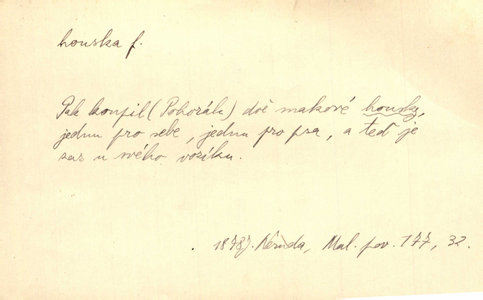 houska f.
Pak koupil (Pohorák) dvě makové housky,
jednu pro sebe, jednu pro psa, a teď je
zas u svého vozíku.
1878 Neruda, Mal. pov. 177, 32.